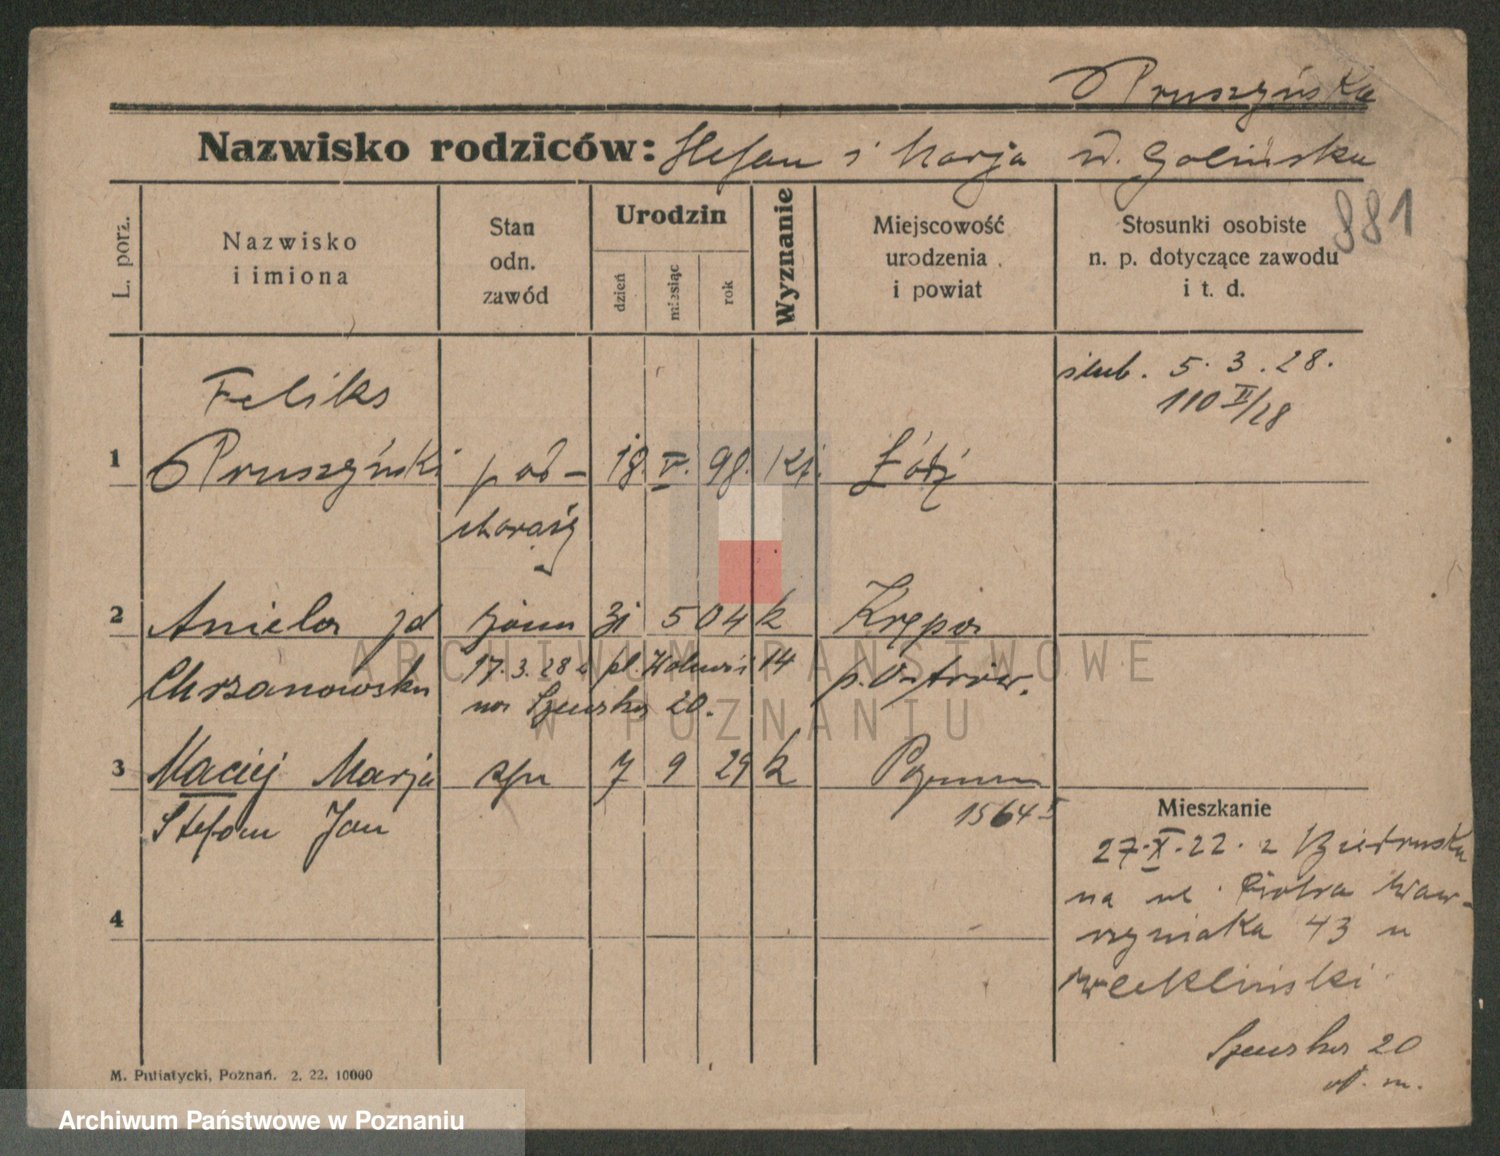 Pruszyńska
Nazwisko rodziców: Stefan i Marja z d. Golińska
881
L. porz.
Nazwisko
i imiona
Stan
odn.
zawód
Urodzin
dzień
miesiąc
rok
Wyznanie
Miejscowość
urodzenia
i powiat
Stosunki osobiste
n. p. dotyczące zawodu
i t. d.
ślub. 5. 3. 28.
110 II/28
Feliks
1 Pruszyński pod- 18. V. 98. Łódź
chorąży
2 Aniela zd żona 31 5 04 k Krępa
Chrzanowska 17.3.28 pl. 14 p. Ostrów.
na 20.
3 Maciej Marja syn 7 9 29 k Poznań
Stefan Jan 1564 I
4
Mieszkanie
27.X.22. z Biedruska
na ul. Piotra Waw-
rzyniaka 43 u
Weklinski
20
M. Putiatycki, Poznań. 2. 22. 10000
ARCHIWUM PAŃSTWOWE
W POZNANIU
Archiwum Państwowe w Poznaniu